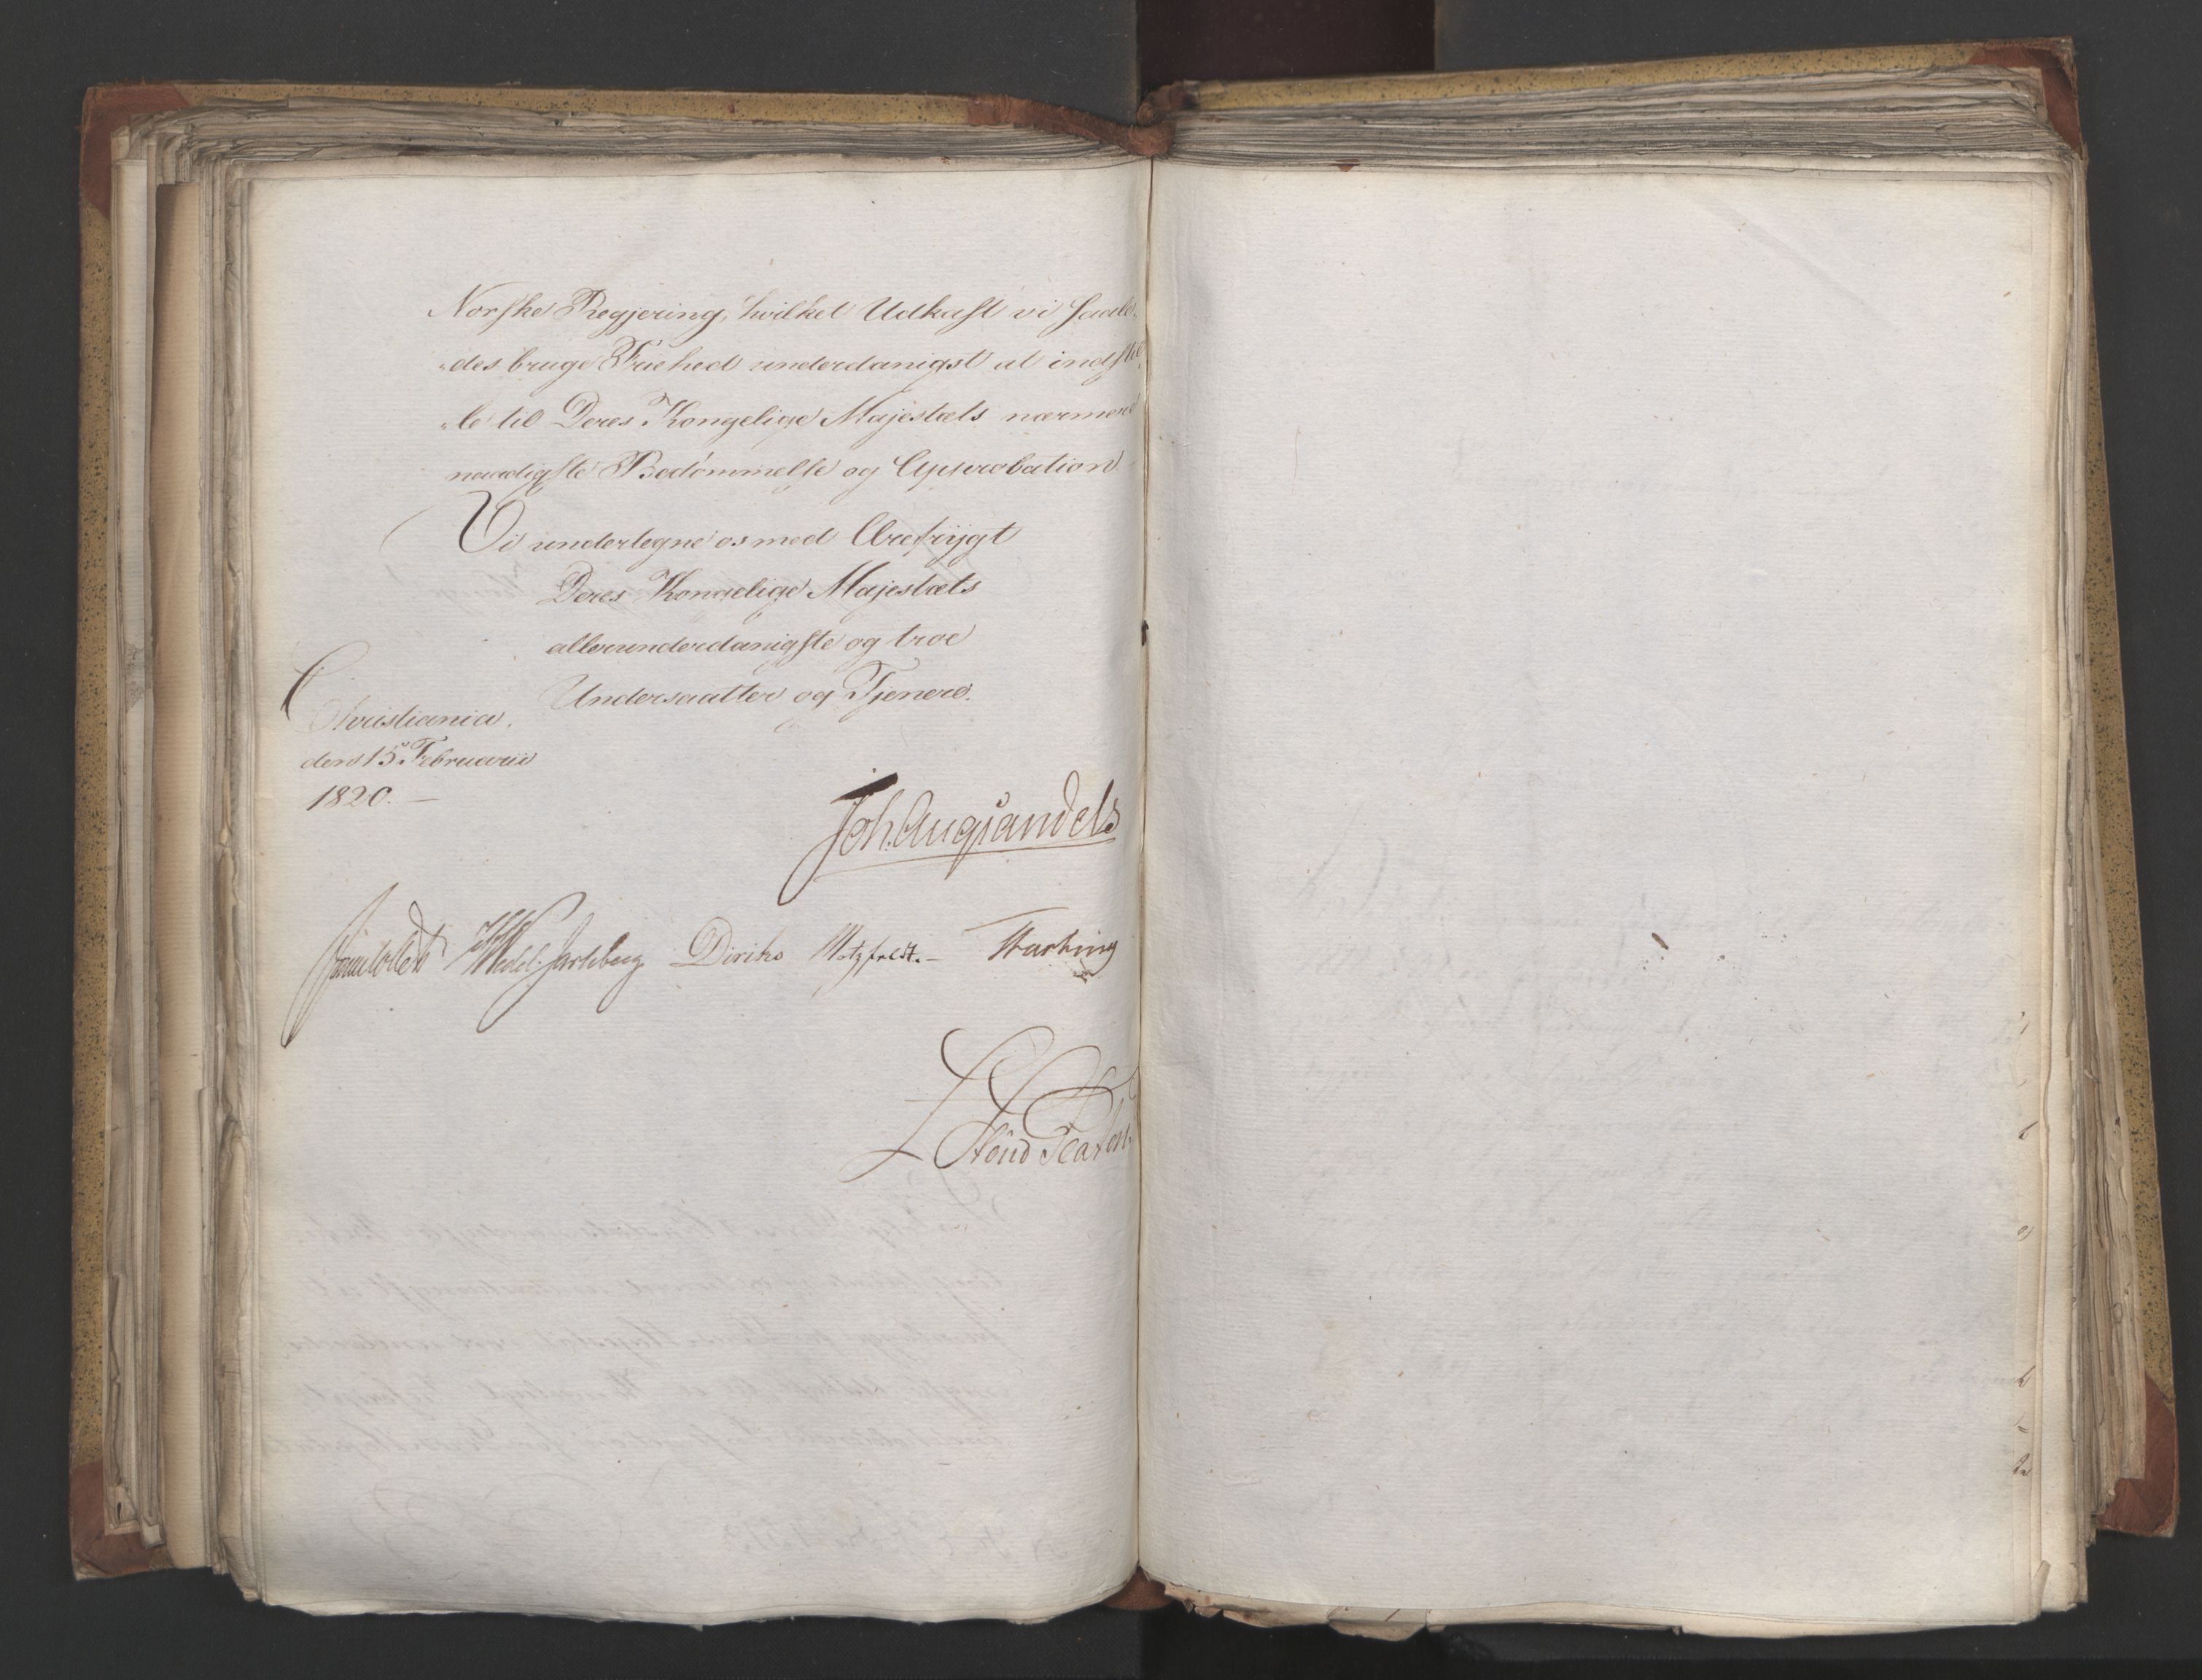 Norske Regjering, hvilket Udkast vi saale¬
„des bruge Friehed underdanigst at indstil¬
„le til Deres Kongelige Majestæts nærmere
naadigste Bedömmelse og Approbation.
Vi undertegne os med Ærefrÿgt
Deres Kongelige Majestæts
allerunderdanigste og troe
Undersaatter og Tjenere.
Christiania,
den 15 Februarii
1820. —
Joh. Aug Sandels
Sommerhielm HWedel-Jarlsberg Diriks Motzfeldt. – Fasting